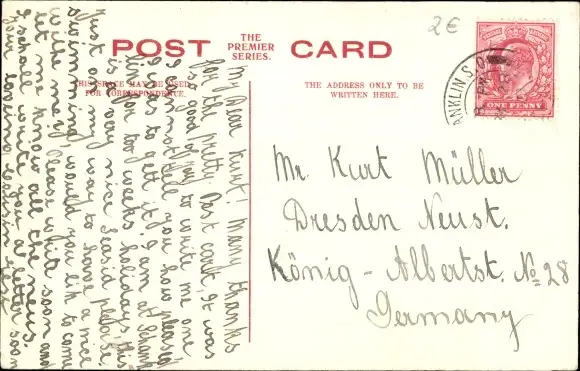 POST CARD
THE
PREMIER
SERIES.
2€
THIS SPACE MAY BE USED
FOR CORRESPONDENCE
THE ADDRESS ONLY TO BE
WRITTEN HERE.
ONE PENNY
My Dear Kurt! Many thanks
for the pretty Post card. It was
so good of you to write me one
I cannot tell you how pleased
I was to get it. I am at
for two weeks holidays, this
is a very nice Seasid
Just on my way to have a nice
swimming, would you lik to come
with me? Please write soon and
let me know all the news.
I schall write you a letter soon
Your loving
Mr. Kurt Müller
Dresden Neust.
König-Albertst. No 28
Germany